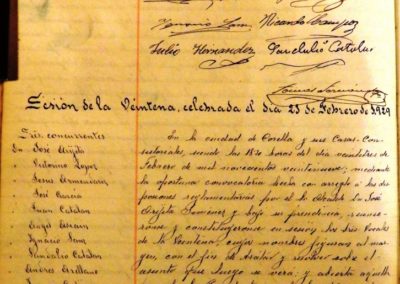 Ignacio Sanz Nicanto Campos
Julio Hernandez Pandulio Catalan
Sesión de la Veintena, celebrada el dia 23 de Febrero de 1929
Sres. concurrentes
Dn José Arijita
" Victorino Lopez
" Jesus
" José Garcia
" Juan Catalan
" Angel Ascain
" Ignacio Sanz
" Pandulio Catalan
" Andres Arellano
En la ciudad de Corella y sus Casas Con-
sistoriales, siendo las 18'30 horas del dia veintitres de
Febrero de mil novecientos veintinueve; mediante
la oportuna convocatoria hecha con arreglo a las dis-
posiciones reglamentarias por el Sr Alcalde Dn José
Arijita y bajo su presidencia, reunié-
ronse y constituyeronse en sesión los Sres Vocales
de la Veintena, cuyos nombres figuran al mar-
gen, con el fin de tratar y resolver sobre el
asunto que luego se verá, y abierta aquella